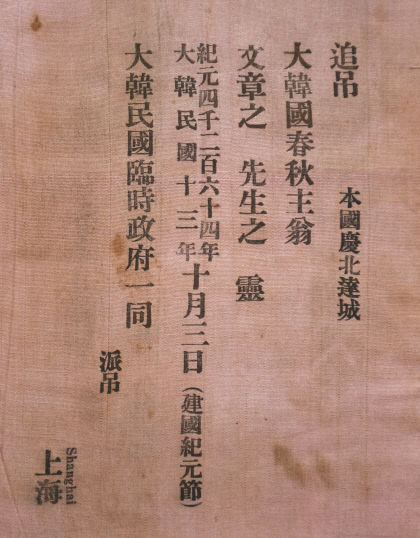 追吊
本國慶北達城
大韓國春秋主翁
文章之 先生之 靈
紀元四千二百六十四年
大韓民國十三年
十月三日(建國紀元節)
大韓民國臨時政府一同
派吊
Shanghai
上海